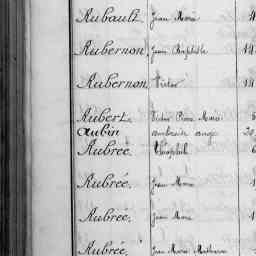 Aubault, Jean Marie 4
Aubernon, Jean Baptiste 14
Aubernon, Victor 14
Aubert, Victor Pierre Marie
Aubin ambroise ange 20
Aubrée, Théophile 6
Aubrée, Jean Marie 1
Aubrée, Jean Marie 1
Aubrée, Jean Marie Mathurin